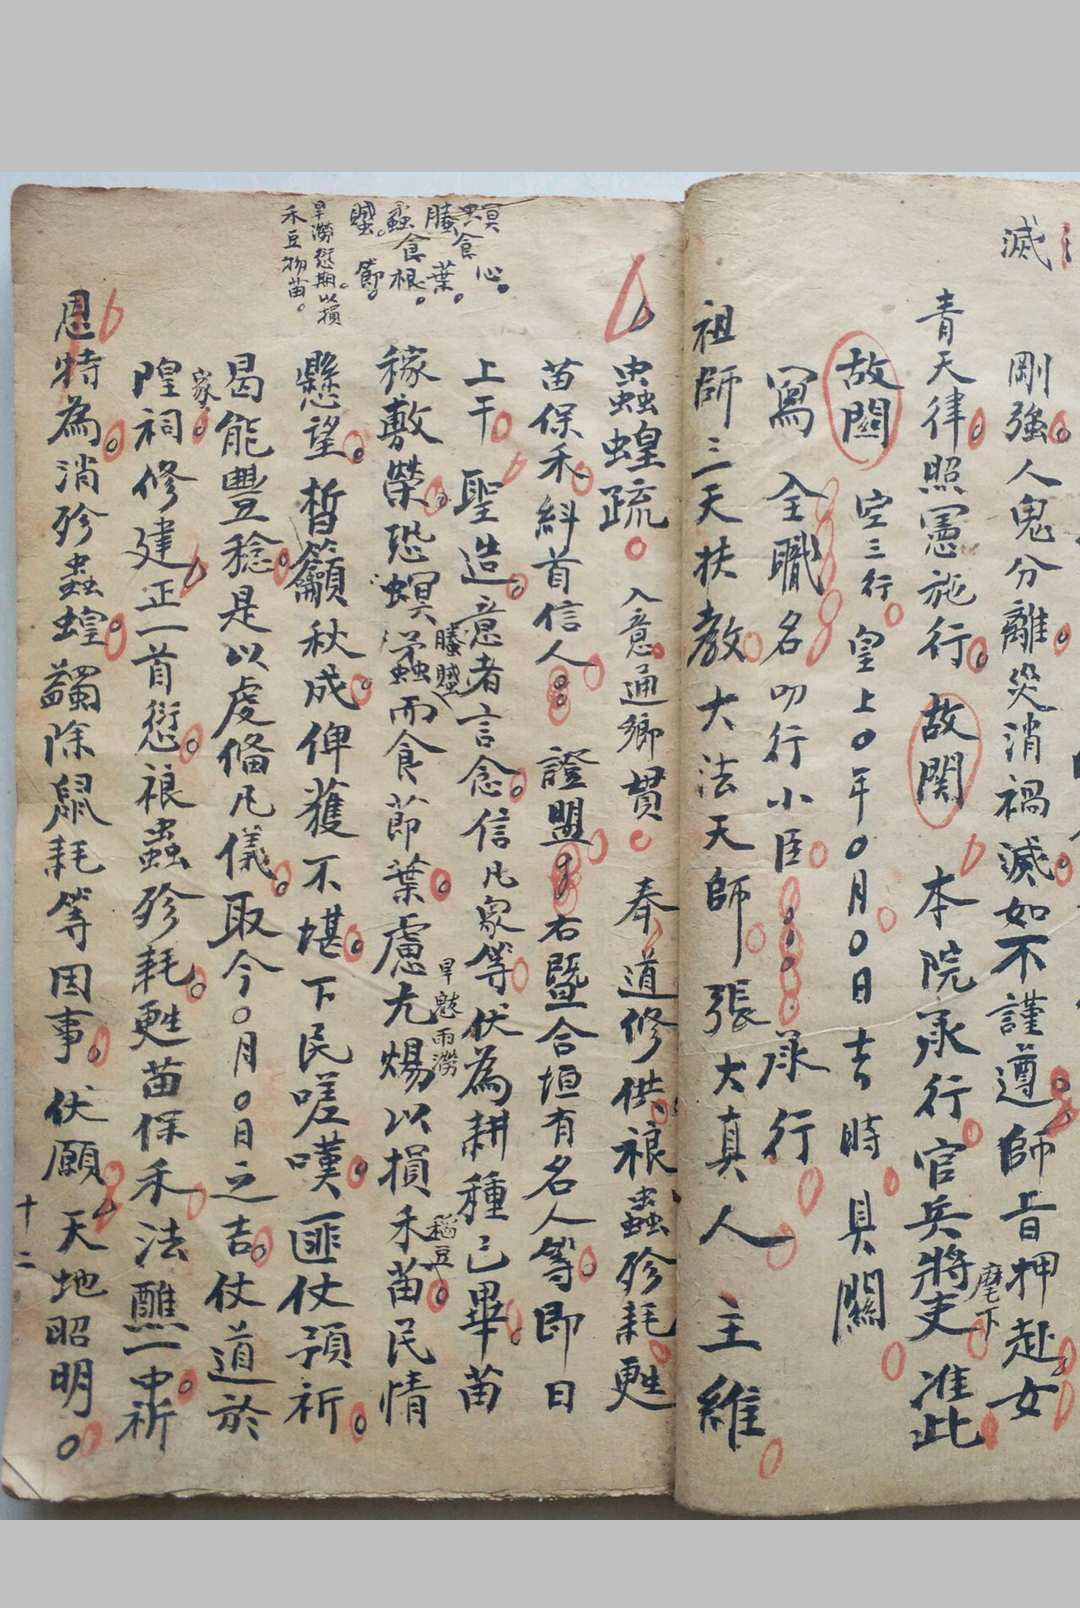 滅
剛強人鬼分離災消禍滅如不謹遵師旨押赴女
青天律照憲施行故関 本院承行官兵將吏 准此
麾下
故關 空三行 皇上〇年〇月〇日吉時具關
寫 全職名叩行小臣 承行
祖師三天扶教大法天師張大真人 主維
蟲蝗疏 入意通鄉貫 奉道修供禳蟲殄耗甦
苗保禾斜首信人 證盟 右暨合垣有名人等即日
上干 聖造意者言念信凡家等伏為耕種已畢苗
稼敷榮恐螟蟊而食節葉慮亢煬以損禾苗民情
螣蠈
旱魃雨澇
稻豆
懸望皙籲秋成俾獲不堪下民嗟嘆匪仗預祈
曷能豐稔是以虔俻凡儀取今〇月〇日之吉仗道於
家
隍祠修建正一首愆禳蟲殄耗甦苗保禾法醮一中祈
恩特為消殄蟲蝗蠲除鼠耗等因事伏願天地昭明
螟食心
螣食葉
蟊食根
蠈 節
旱澇愆期以損
禾豆物苗
十二